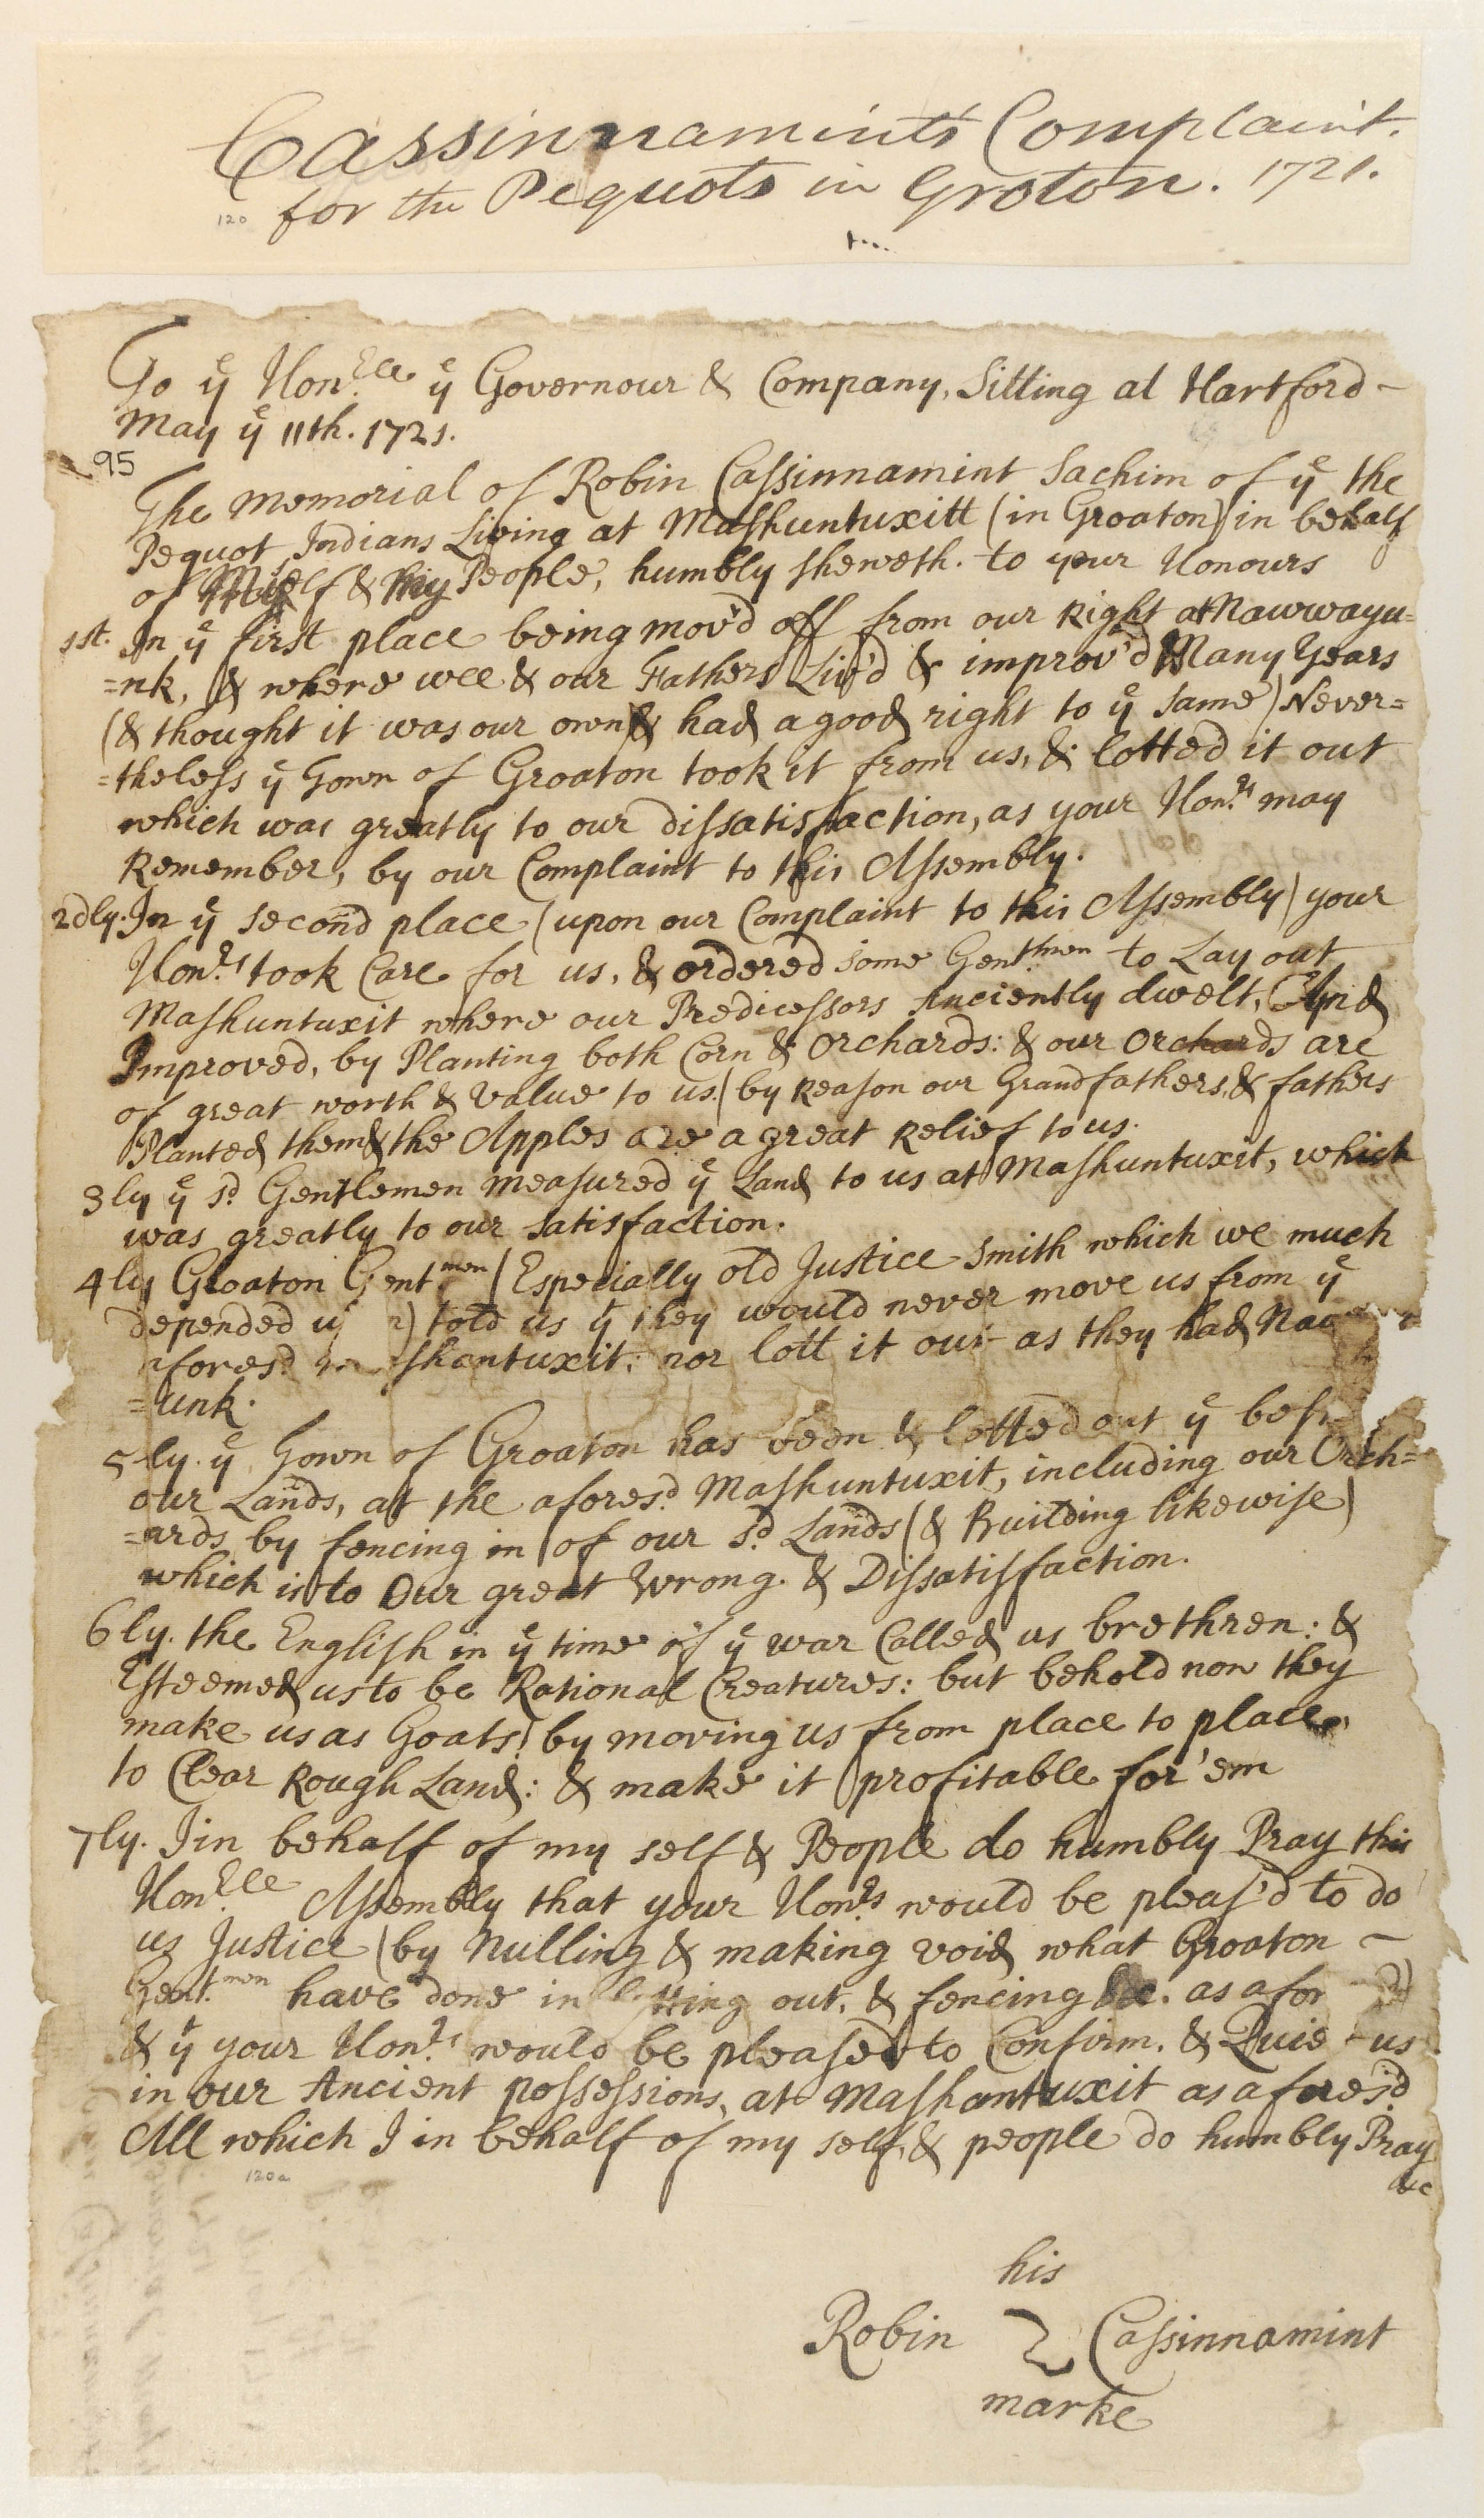 Cassinnamints Complaint.
for the Pequots in Groton. 1721.
120
To yͤ Hon.ᵇˡᵉ yͤ Governour & Company, Sitting at Hartford –
May yͤ 11th. 1721.
95
The Memorial of Robin Cassinnamint Sachim of yͤ the
Pequot Indians Living at Mashuntuxitt (in Groaton) in behalf
of My self & My People, humbly sheweth. to your Honours
1st. In yͤ first place being mov'd off from our Right at Nawwayu=
=nk, & where wee & our Fathers Liv'd & improv'd Many Years
(& thought it was our own & had a good right to yͤ same) Never=
=theless yͤ Town of Groaton took it from us, & lotted it out
which was greatly to our dissatisfaction, as your Hon.ʳˢ may
Remember, by our Complaint to this Assembly.
2dly. In yͤ second place (upon our Complaint to this Assembly) your
Hon.ʳˢ took Care for us, & ordered some Gent.ˡᵐᵉⁿ to Lay out
Mashuntuxit where our Predicessors Anciently dwelt, And
Improved, by Planting both Corn & Orchards: & our Orchards are
of great worth & value to us. (by Reason our Grandfathers, & fathers
Planted them & the Apples are a great Relief to us.
3ly yͤ s.ᵈ Gentlemen measured yͤ Land to us at Mashuntuxit, which
was greatly to our satisfaction.
4ly Groaton Gent.ᵐᵉⁿ (Especially old Justice Smith which we much
depended told us yͭ they would never move us from yͤ
afores.ᵈ shantuxit: nor lott it out as they had
=unk.
5ly. yͤ Town of Groaton has been & lotted out yͤ
our Lands, at the afores.ᵈ Mashuntuxit, including our Orch=
=ards by fencing in of our s.ᵈ Lands (& Building likewise)
which is to Our great Wrong. & Dissatisfaction.
6ly. the English in yͤ time of yͤ war Called us brethren: &
Esteemed us to be Rational Creatures: but behold now they
make us as Goats! by moving us from place to place,
to Clear Rough Land: & make it profitable for 'em
7ly. I in behalf of my self & People do humbly Pray this
Hon.ᵇˡᵉ Assembly that your Hon.ʳˢ would be pleas'd to do
us Justice (by Nulling & making void what Groaton –
Gent.ᵐᵉⁿ have done in lotting out, & fencing &c. as afor
& yͭ your Hon.ʳˢ would be pleased to Confirm. & Quiet us
in our Ancient possessions, at Mashantuxit as afores'd
All which I in behalf of my self, & people do humbly Pray
&c
120a
his
Robin Cassinnamint
marke